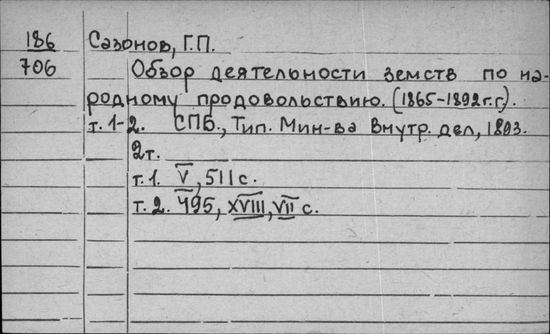 186 Сазонов, Г.П.
706 Обзор деятельности земств по на-
родному продовольствию. (1865-1892г.г.).
т. 1-2. СПБ., Тип. Мин-ва Внутр. дел, 1893.
2т.
т. 1. V, 511 с.
т. 2. 495, XVIII, VII с.